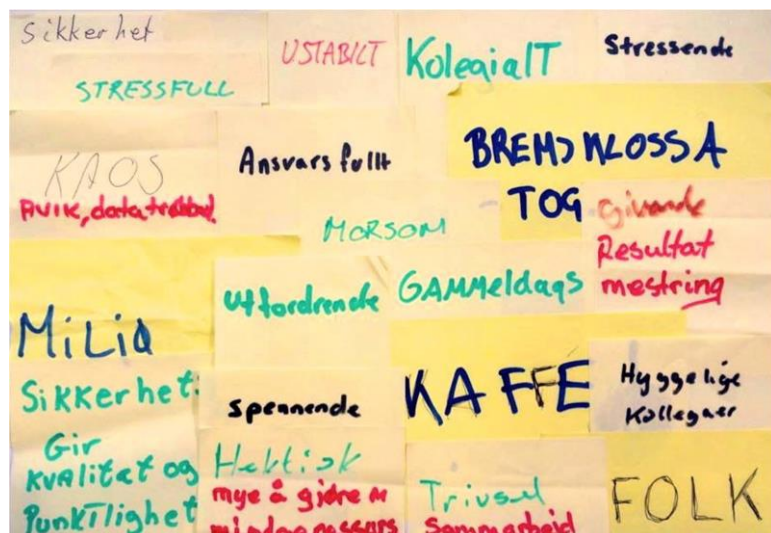 Sikkerhet
STRESSFULL
USTABILT
KolegialT
Stressende
KAOS
AVIK, data trøbbel
Ansvarsfullt
BREMSKLOSSA
TOG
MORSOM
Givande
Resultat
mestring
MiLiø
Utfordrende
GAMMeldags
Sikkerhet:
Gir
KVAlitet og
PunkTlighet
Spennende
KAFFE
Hyggelige
Kollegaer
Hektisk
mye å gjøre m
mindre ressurs
Trivsel
Sammarbeid
FOLK